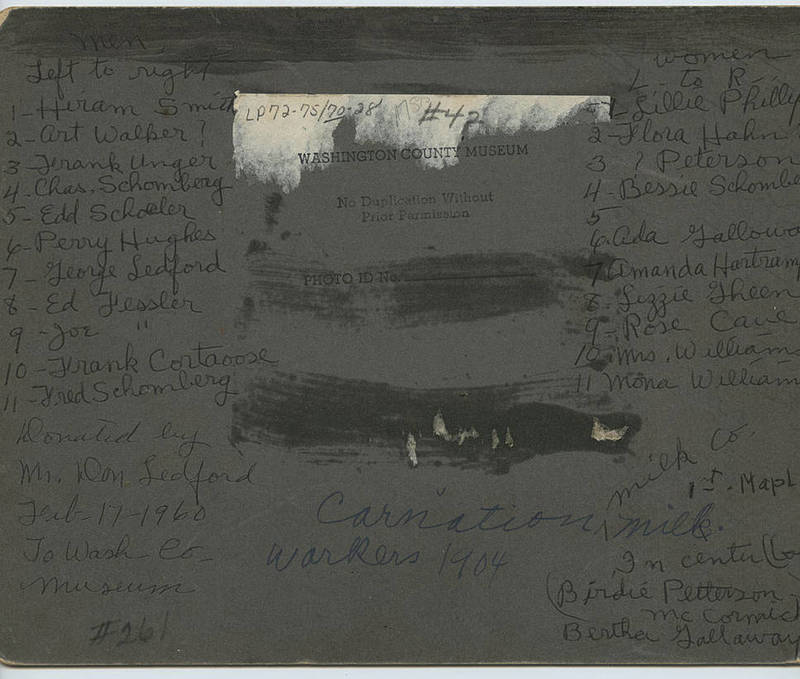 Men
Left to right
1- Hiram Smith
2- Art Walker?
3- Frank Unger
4- Chas. Schomberg
5- Edd Schoeler
6- Perry Hughes
7- George Ledford
8- Ed Fessler
9- Joe "
10- Frank Cortaoose
11- Fred Schomberg
Donated by
Mr. Don Ledford
Feb-17-1960
To Wash Co-
Museum
#261
LP72-75/70-28 #42
WASHINGTON COUNTY MUSEUM
No Duplication Without
Prior Permission
PHOTO ID No.
Carnation, milk.
workers 1904
women
L- to R-
1- Lillie Philly
2- Flora Hahn
3 ? Peterson
4- Bessie Schombe
5
6- Ada Gallowa
7 Amanda Hartram
8- Lizzie Gheen
9- Rose Cave
10 Mrs. Williams
11 Mona William
milk Co.
1st. Mapl
In center (
(Birdie Petterson
McCormic
Bertha Gallaway